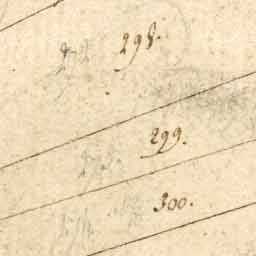 298.
299.
300.